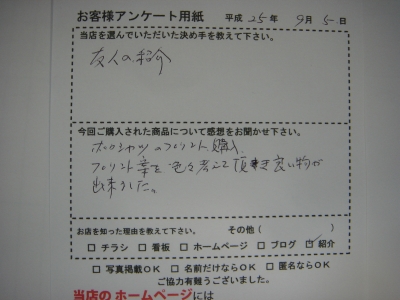 お客様アンケート用紙 平成 25 年 9 月 5 日
当店を選んでいただいた決め手を教えて下さい。
友人の紹介
今回ご購入された商品について感想をお聞かせ下さい。
ポロシャツのプリント購入
プリント案を色々考えて頂き良い物が
出来ました。
お店を知った理由を教えて下さい。 その他( )
□ チラシ □ 看板 □ ホームページ □ ブログ ☑ 紹介
□ 写真掲載OK □ 名前だけならOK □ 匿名ならOK
ご協力有難うございました。
当店の ホームページには